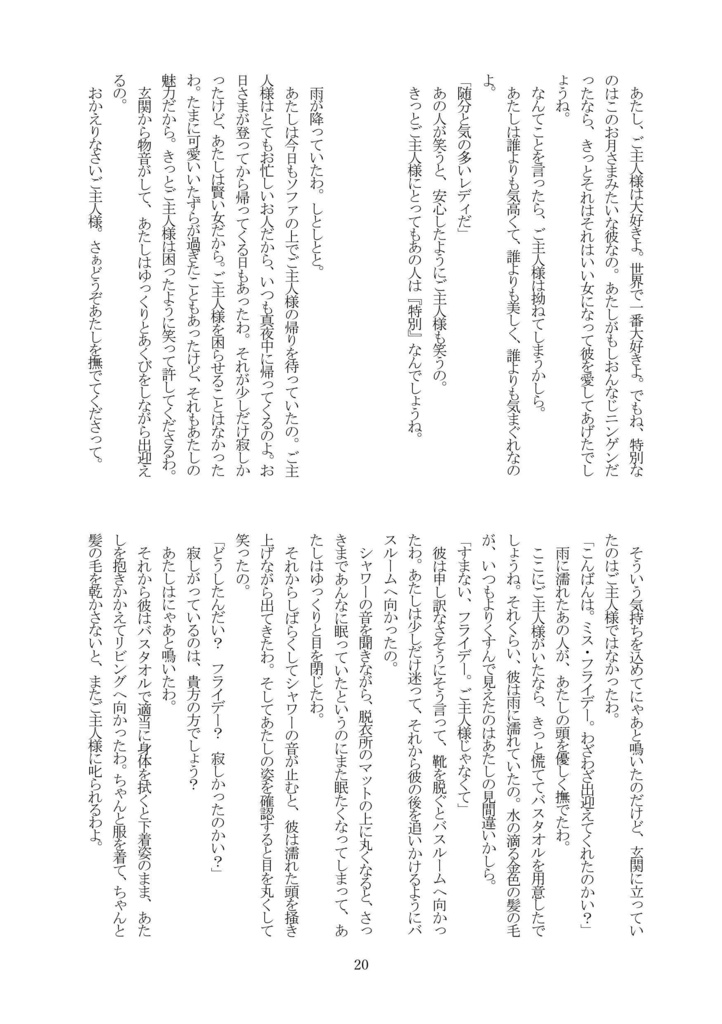 あたし、ご主人様は大好きよ。世界で一番大好きよ。でもね、特別な
のはこのお月さまみたいな彼なの。あたしがもしおんなじニンゲンだ
ったなら、きっとそれはそれはいい女になって彼を愛してあげたでし
ょうね。
　なんてことを言ったら、ご主人様は拗ねてしまうかしら。
　あたしは誰よりも気高くて、誰よりも美しく、誰よりも気まぐれなの
よ。
「随分と気の多いレディだ」
　あの人が笑うと、安心したようにご主人様も笑うの。
　きっとご主人様にとってもあの人は『特別』なんでしょうね。
　雨が降っていたわ。しとしとと。
　あたしは今日もソファの上でご主人様の帰りを待っていたの。ご主
人様はとてもお忙しいお人だから、いつも真夜中に帰ってくるのよ。お
日さまが登ってから帰ってくる日もあったわ。それが少しだけ寂しか
ったけど、あたしは賢い女だから。ご主人様を困らせることはなかった
わ。たまに可愛いいたずらが過ぎたこともあったけど、それもあたしの
魅力だから。きっとご主人様は困ったように笑って許してくださるわ。
　玄関から物音がして、あたしはゆっくりとあくびをしながら出迎え
るの。
　おかえりなさいご主人様。さぁどうぞあたしを撫でてくださって。
　そういう気持ちを込めてにゃあと鳴いたのだけど、玄関に立ってい
たのはご主人様ではなかったわ。
「こんばんは。ミス・フライデー。わざわざ出迎えてくれたのかい？」
　雨に濡れたあの人が、あたしの頭を優しく撫でたわ。
　ここにご主人様がいたなら、きっと慌ててバスタオルを用意したで
しょうね。それくらい、彼は雨に濡れていたの。水の滴る金色の髪の毛
が、いつもよりくすんで見えたのはあたしの見間違いかしら。
「すまない、フライデー。ご主人様じゃなくて」
　彼は申し訳なさそうにそう言って、靴を脱ぐとバスルームへ向かっ
たわ。あたしは少しだけ迷って、それから彼の後を追いかけるようにバ
スルームへ向かったの。
　シャワーの音を聞きながら、脱衣所のマットの上に丸くなると、さっ
きまであんなに眠っていたというのにまた眠たくなってしまって、あ
たしはゆっくりと目を閉じたわ。
　それからしばらくしてシャワーの音が止むと、彼は濡れた頭を掻き
上げながら出てきたわ。そしてあたしの姿を確認すると目を丸くして
笑ったの。
「どうしたんだい？　フライデー？　寂しかったのかい？」
　寂しがっているのは、貴方の方でしょう？
　あたしはにゃあと鳴いたわ。
　それから彼はバスタオルで適当に身体を拭くと下着姿のまま、あた
しを抱きかかえてリビングへ向かったわ。ちゃんと服を着て、ちゃんと
髪の毛を乾かさないと、またご主人様に叱られるわよ。
20